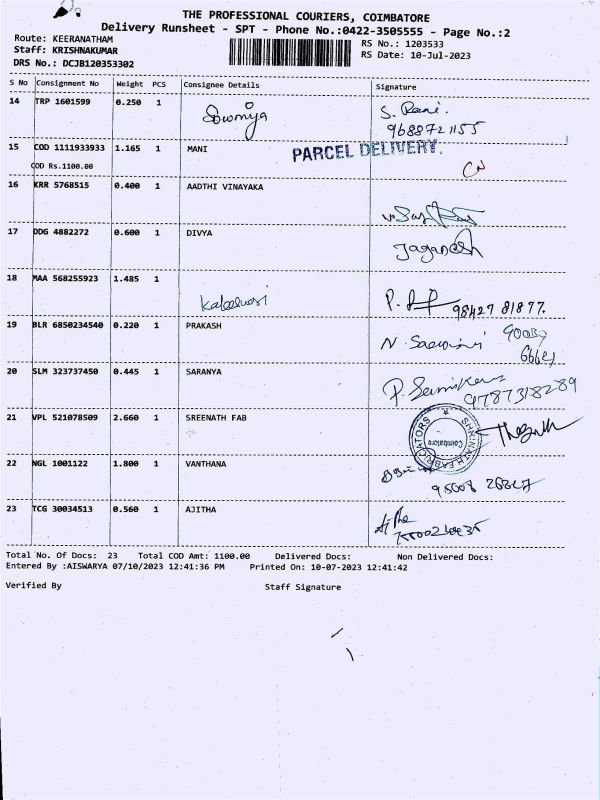 THE PROFESSIONAL COURIERS, COIMBATORE
Delivery Runsheet - SPT - Phone No.:0422-3505555 - Page No.:2
Route: KEERANATHAM
Staff: KRISHNAKUMAR
DRS No.: DCJB120353302
RS No.: 1203533
RS Date: 10-Jul-2023
S No Consignment No Weight PCS Consignee Details Signature
14 TRP 1601599 0.250 1 Sowmiya S. Rani.
9688721155
15 COD 1111933933 1.165 1 MANI PARCEL DELIVERY.
COD Rs.1100.00
16 KRR 5768515 0.400 1 AADTHI VINAYAKA
17 DDG 4882272 0.600 1 DIVYA Jaganesh
18 MAA 568255923 1.485 1
98427 81877.
19 BLR 6850234540 0.220 1 PRAKASH
20 SLM 323737450 0.445 1 SARANYA
9787318289
21 VPL 521078509 2.660 1 SREENATH FAB
Coimbatore
22 NGL 1001122 1.800 1 VANTHANA
23 TCG 30034513 0.560 1 AJITHA
Total No. Of Docs: 23 Total COD Amt: 1100.00 Delivered Docs: Non Delivered Docs:
Entered By :AISWARYA 07/10/2023 12:41:36 PM Printed On: 10-07-2023 12:41:42
Verified By Staff Signature